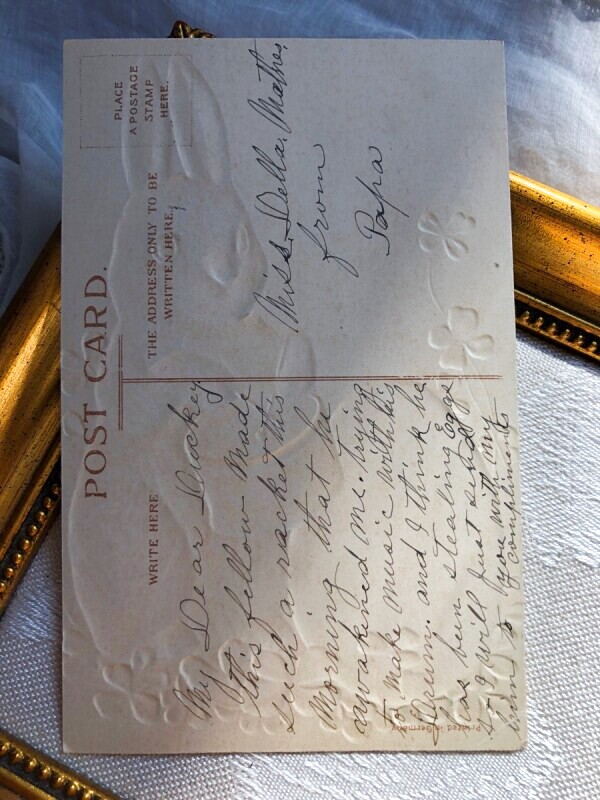 POST CARD.
PLACE
A POSTAGE
STAMP
HERE.
WRITE HERE
THE ADDRESS ONLY TO BE
WRITTEN HERE
My Dear Duckey
this fellow made
such a racket this
morning that he
awakened me. trying
to make music with his
Drum. and I think he
has been stealing Eggs
so I will just send
him to you with my
compliments
Miss. Della. Mather.
from
Papa
Printed in Germany